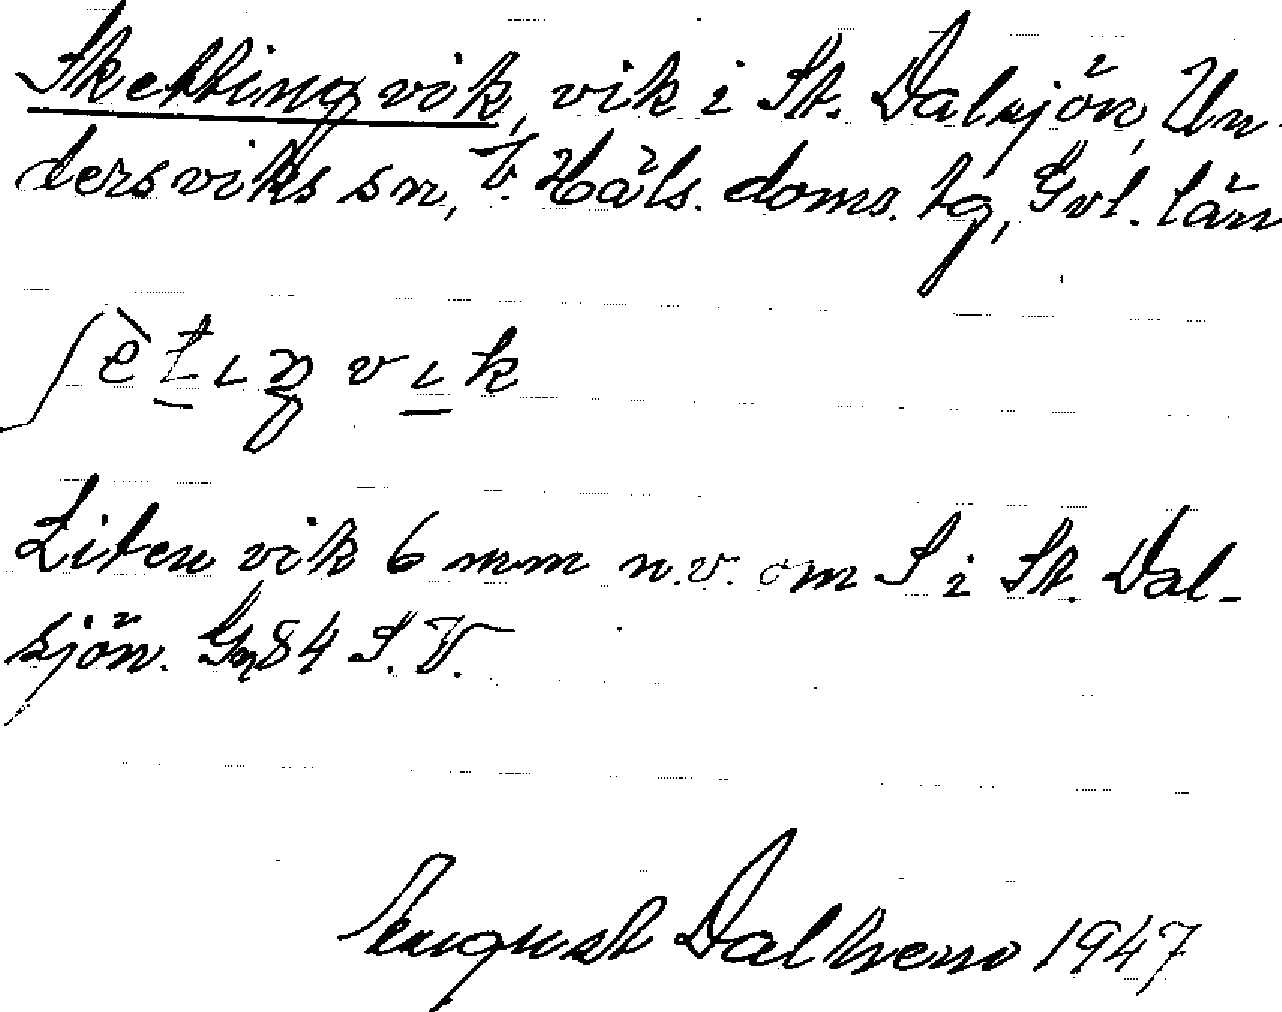 Skettingvik, vik i St. Dalsjön, Un-
dersviks sn, V. Häls. doms. tg, Gvl. län
ʃètıŋvık
Liten vik 6 mm n.v. om S i St. Dal-
sjön. Gn84 S.V.
August Dalhems 1947